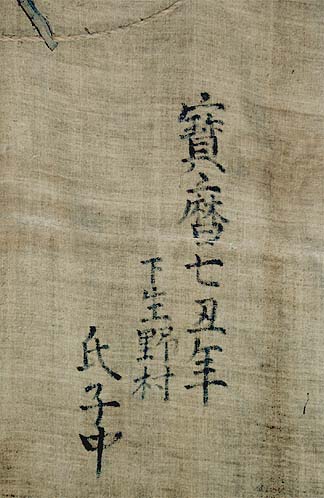 寳暦七丑年
下生野村
氏子中